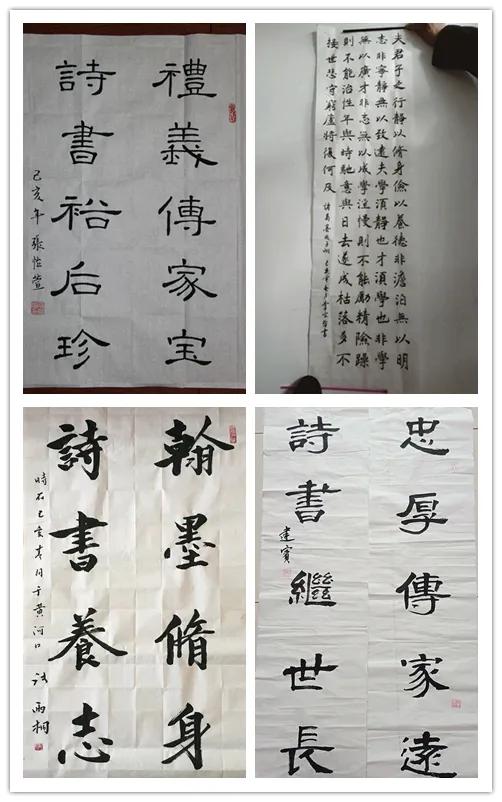 禮義傳家宝
詩書裕后珍
己亥年 張
夫君子之行靜以脩身儉以養德非澹泊無以明
志非寧靜無以致遠夫學須靜也才須學也非學
無以廣才非志無以成學淫慢則不能勵精險躁
則不能治性年與時馳意與日去遂成枯落多不
接世悲守窮廬將復何及
諸葛亮
翰墨脩身
詩書養志
時在己亥春月于黄河口 雨桐
忠厚傳家遠
詩書繼世長
建賓